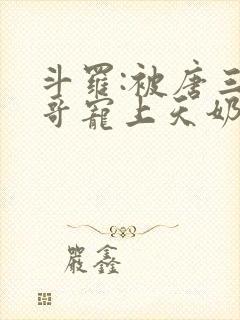 斗羅:被唐三
哥寵上天奶
嚴鑫